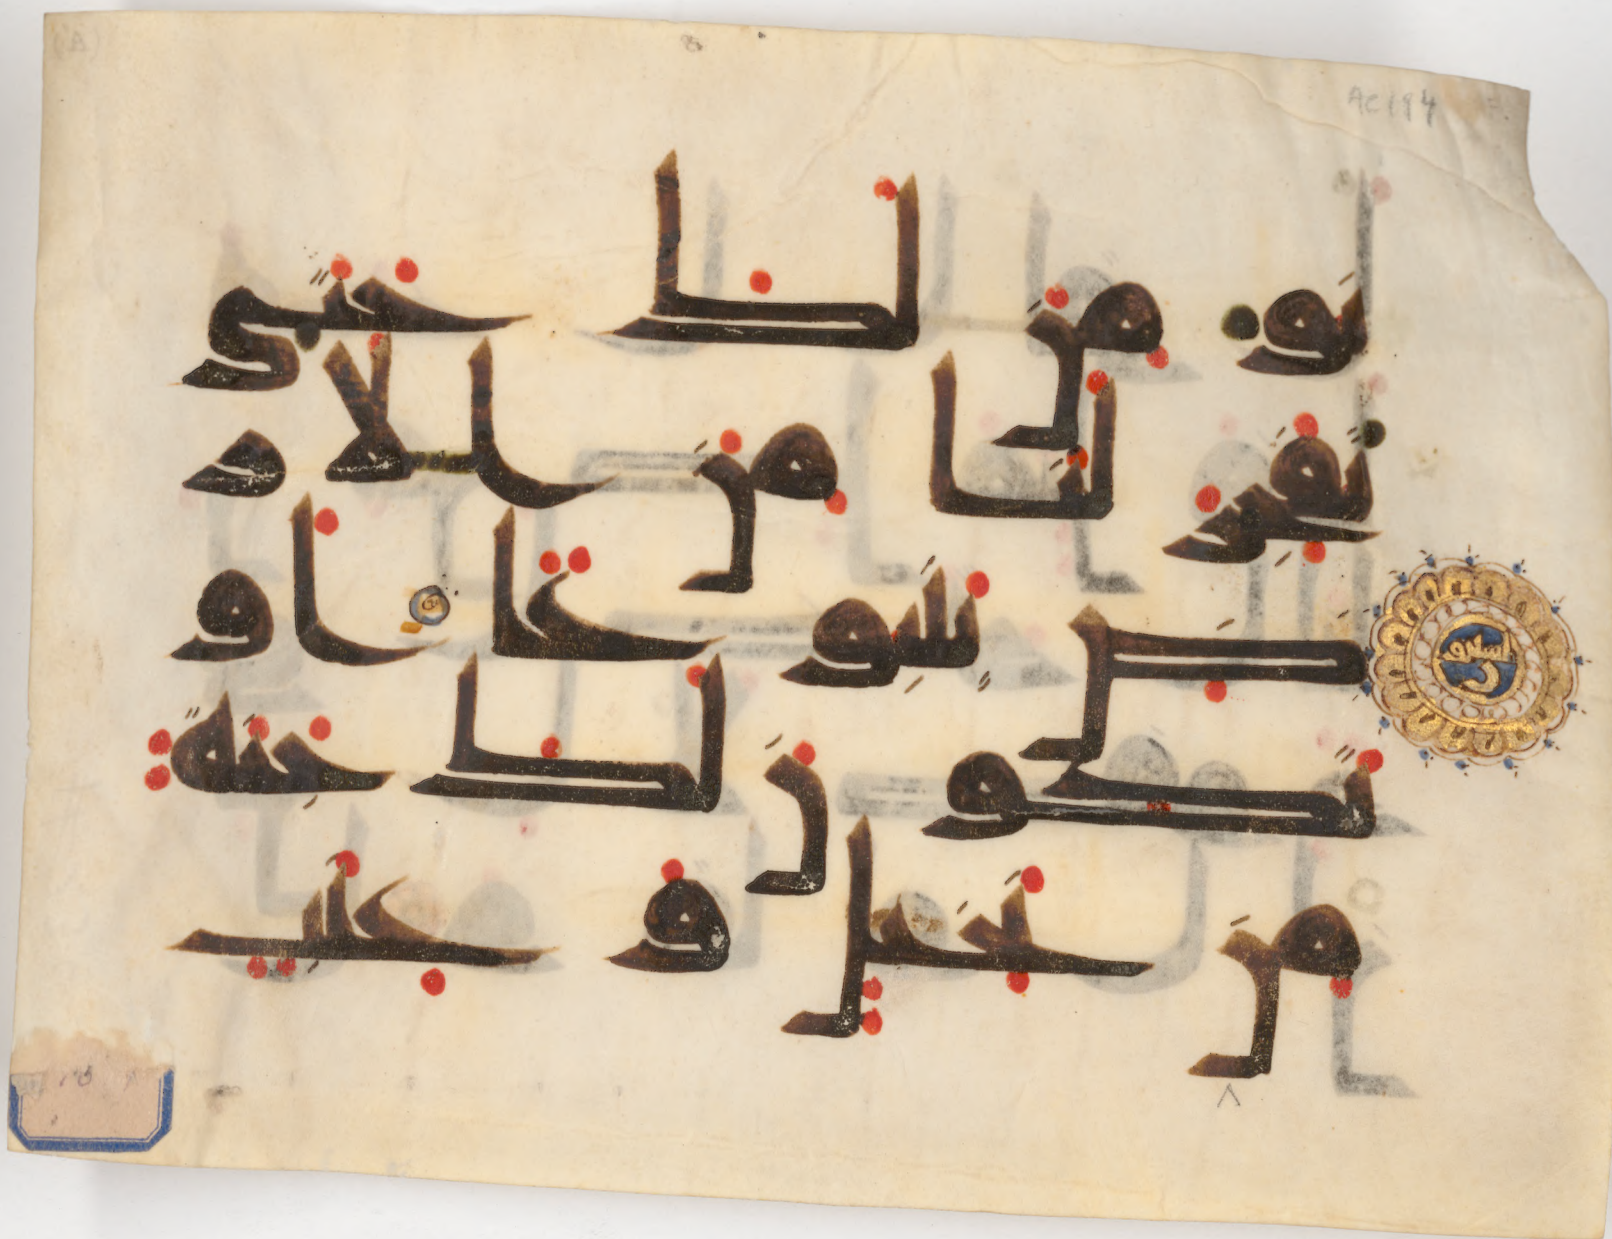 (A)
AC184
نومن لك حتى
تفجر لنا من الار
ض ينبوعا او
تسعون
تكون لك جنة
من نخيل وعنب
٨